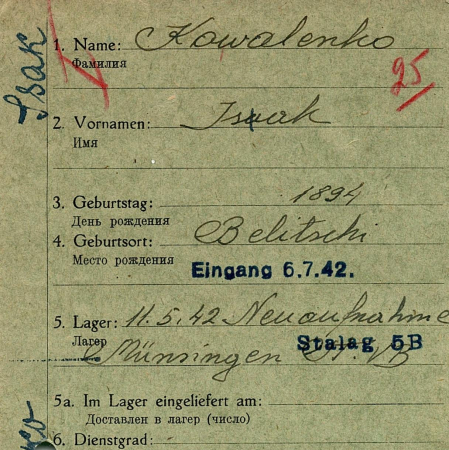 Isak
1. Name: Kowalenko
Фамилия
25
2. Vornamen: Isaak
Имя
3. Geburtstag: 1894
День рождения
4. Geburtsort: Belitschi
Место рождения
Eingang 6.7.42.
5. Lager: 11.5.42 Neuaufnahme
Лагерь
Münsingen St. VB
Stalag 5B
5a. Im Lager eingeliefert am:
Доставлен в лагерь (число)
6. Dienstgrad: